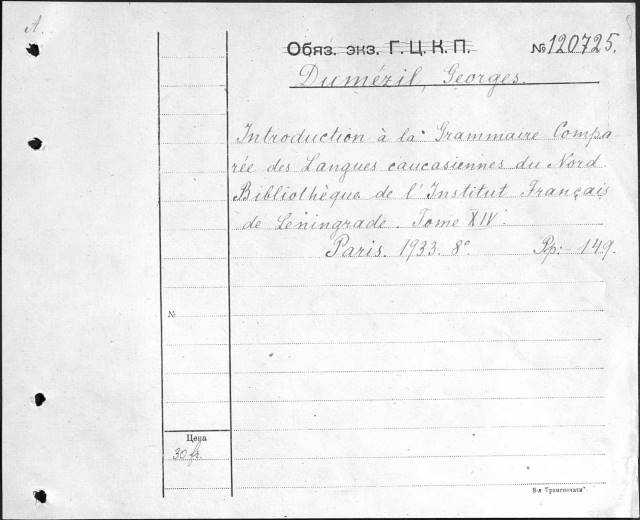 А.
Обяз. экз. Г. Ц. К. П. № 120725.
Dumézil, Georges.
Introduction à la Grammaire Compa
rée des Langues caucasiennes du Nord.
Bibliothèque de l'Institut Français
de Léningrade. Tome XIV.
Paris. 1933. 8° Pp: 149.
№
Цена
30 fr.
8-я „Транспечати“.